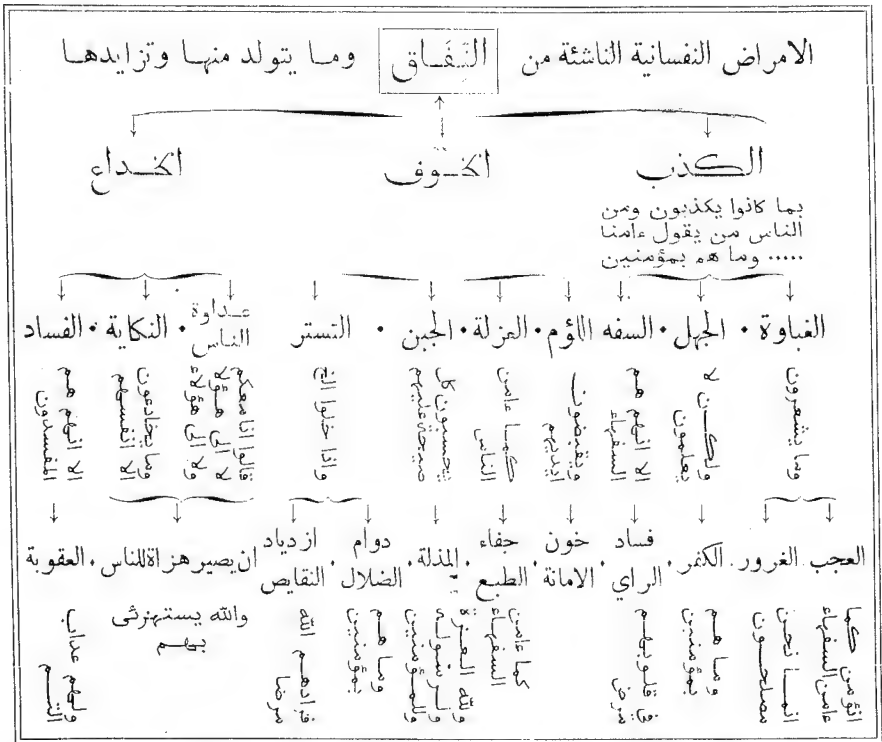 الامراض النفسانية الناشئة من النِفَاق وما يتولد منها وتزايدها
الكذب
الخوف
الخداع
بما كانوا يكذبون ومن
الناس من يقول ءامنا
..... وما هم بمؤمنين
الغباوة • الجهل • السفه • اللؤم • العزلة • الجبن • التستر
عداوة
الناس • النكاية • الفساد
وما يشعرون
ولكن لا
يعلمون
الا انهم هم
السفهاء
ويقبضون
ايديهم
كما ءامن
الناس
يحسبون كل
صيحة عليهم
واذا خلوا الخ
قالوا انا معكم
لا الى هؤلاء
ولا الى هؤلاء
وما يخادعون
الا انفسهم
الا انهم هم
المفسدون
العجب . الغرور . الكفر .
فساد
الراي .
خون
الامانة .
جفاء
الطبع .
المذلة .
دوام
الضلال .
ازدياد
النقايص .
ان يصير هزاة للناس . العقوبة
انؤمن كما
ءامن السفهاء
انما نحن
مصلحون
وما هم
بمؤمنين
في قلوبهم
مرض
كما ءامن
السفهاء
ولله العزة
ولرسوله
وللمؤمنين
وما هم
بمؤمنين
فزادهم الله
مرضا
والله يستهزئ
بهم
ولهم عذاب
اليم